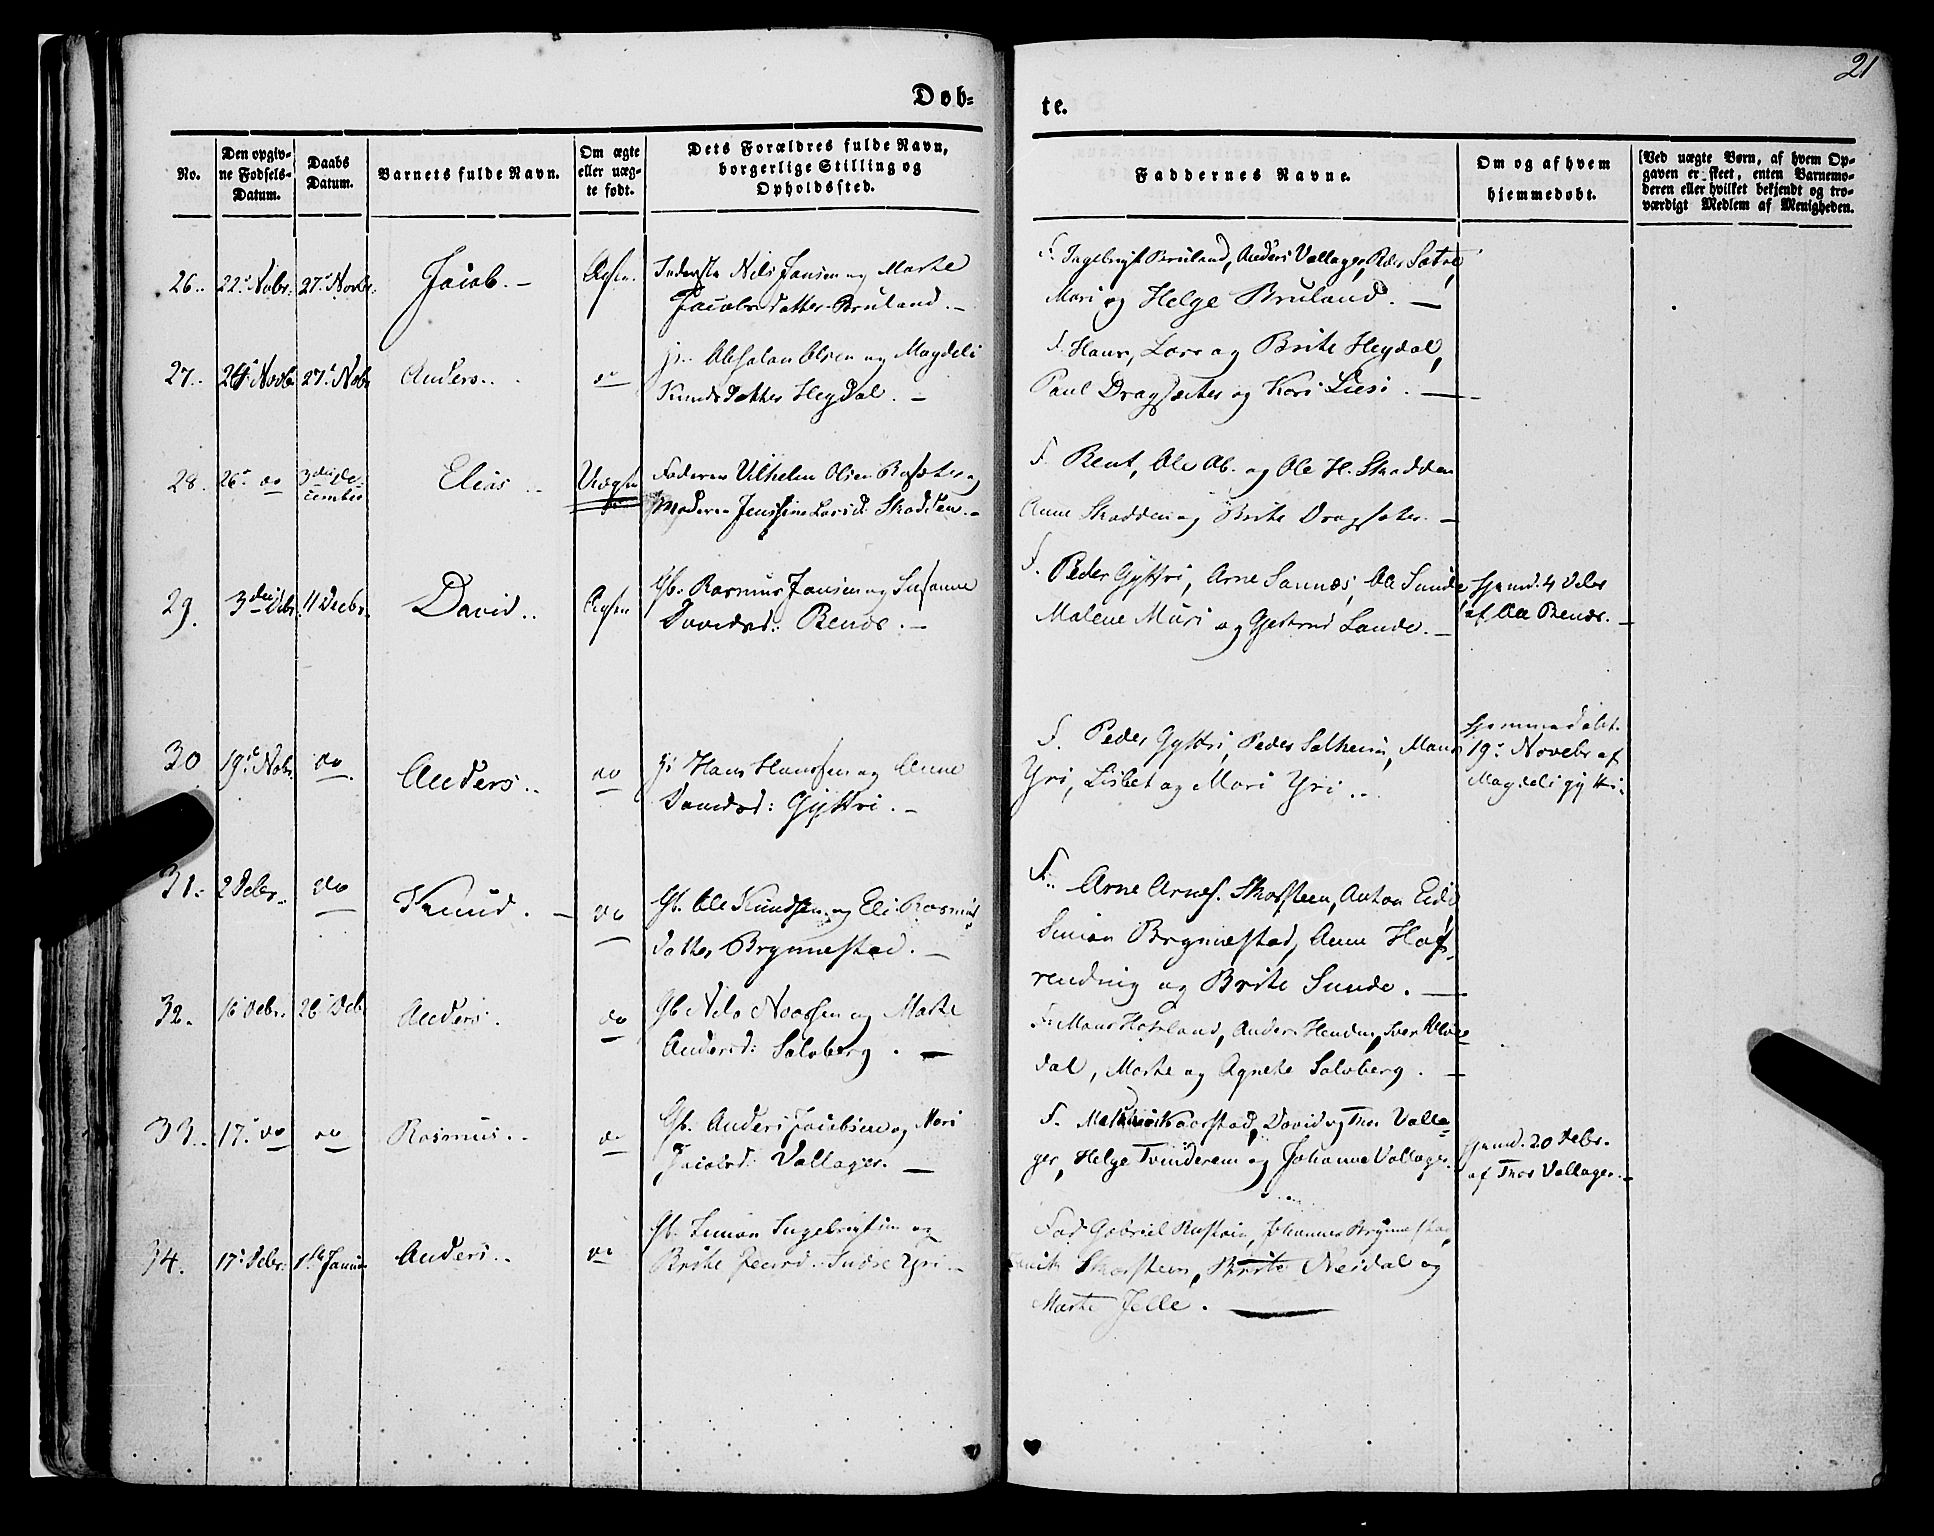 21
Døb-
te.
No.
Den opgiv-
ne Fødsels-
Datum.
Daabs
Datum.
Barnets fulde Navn.
Om ægte
eller uæg-
te født.
Dets Forældres fulde Navn,
borgerlige Stilling og
Opholdssted.
Faddernes Navne.
Om og af hvem
hjemmedøbt.
(Ved uægte Børn, af hvem Op-
gaven er skeet, enten Barnemo-
deren eller hvilket bekjendt og tro-
værdigt Medlem af Menigheden.
26.. 22. Nobr. 27. Novbr. Jacob. Ægte.
Nils Jansen og Marte
Jacobsdatter Bruland.
F. Ingebrigt Bruland, Anders Vallager, Peder Sætre,
Mari og Helge Bruland.
27.. 24. Novb 27. Nobr Anders.. do
Absalon Olsen og Magdeli
Knudsdatter Hegdal.
F. Hans, Lars og Brite Hegdal,
Paul Dragsæter og Kari Liesi.
28. 26. do 3die De-
cember
Elias.. Uægte
Faderen Vilhelm Olsen og
Moderen Jensine Larsd. Skadden.
F. Bent, Ole Ab. og Ole H. Skadden
Anne Skadden og Brite Dragsæter.
29. 3die Debr. 11 Decbr. David.. Ægte
Gb. Rasmus Jansen og Susanne
Davidsd: Benes.
F. Peder Gyttri, Arne Sannes, Ole Sunde
Malene Muri og Gjertrud Lande.
Hjemd. 4 Debr
af Benes.
30 19. Nobr. do Anders.. do
Hans Hanssen og Anne
Danielsd: Gyttri.
F. Peder Gyttri, Peder Solheim, Mans
Yri, Lisbet og Mari Yri..
Hjemmedøbt
19. Novebr af
Magdeli Gyttri.
31. 2 Debr. do Knud. do
Gb. Ole Knudsen og Eli Rasmus
datter Brynnestad.
F.. Arne Arnes. Skarsteen, Anton Eide
Simon Brynnestad, Anne Haf-
rending og Brite Sunde.
32. 16 Debr. 26. Deb Anders. do
Gb Nils Noassen og Marte
Andersd: Solvberg.
F. Mans Hopland, Anders Henden, Iver
dal, Marte og Agnete Solvberg.
33.. 17. do do Rasmus.. do
Gb. Anders Jacobsen og Mari
Jacobsd: Vallager.
F. Kaarstad, David og Thor Valla-
ger, Helge Tvinderem og Johanne Vallager.
Hjemd. 20 Debr.
af Thor Vallager.
34. 17. Debr. 1ste Januar Anders.. do
Gb. Simon Ingebrigtsen og
Brite Peersd. Indre Yri.
Fad. Gabriel, Johannes Brynnestad,
Skarsteen, Brite Nesdal og
Marte Jelle.